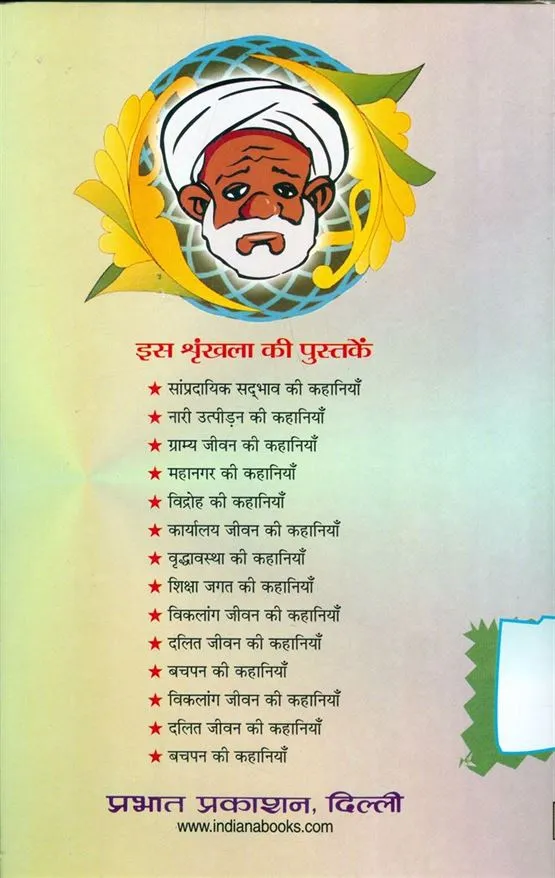 इस शृंखला की पुस्तकें
★ सांप्रदायिक सद्‌भाव की कहानियाँ
★ नारी उत्पीड़न की कहानियाँ
★ ग्राम्य जीवन की कहानियाँ
★ महानगर की कहानियाँ
★ विद्रोह की कहानियाँ
★ कार्यालय जीवन की कहानियाँ
★ वृद्धावस्था की कहानियाँ
★ शिक्षा जगत की कहानियाँ
★ विकलांग जीवन की कहानियाँ
★ दलित जीवन की कहानियाँ
★ बचपन की कहानियाँ
★ विकलांग जीवन की कहानियाँ
★ दलित जीवन की कहानियाँ
★ बचपन की कहानियाँ
प्रभात प्रकाशन, दिल्ली
www.indianabooks.com